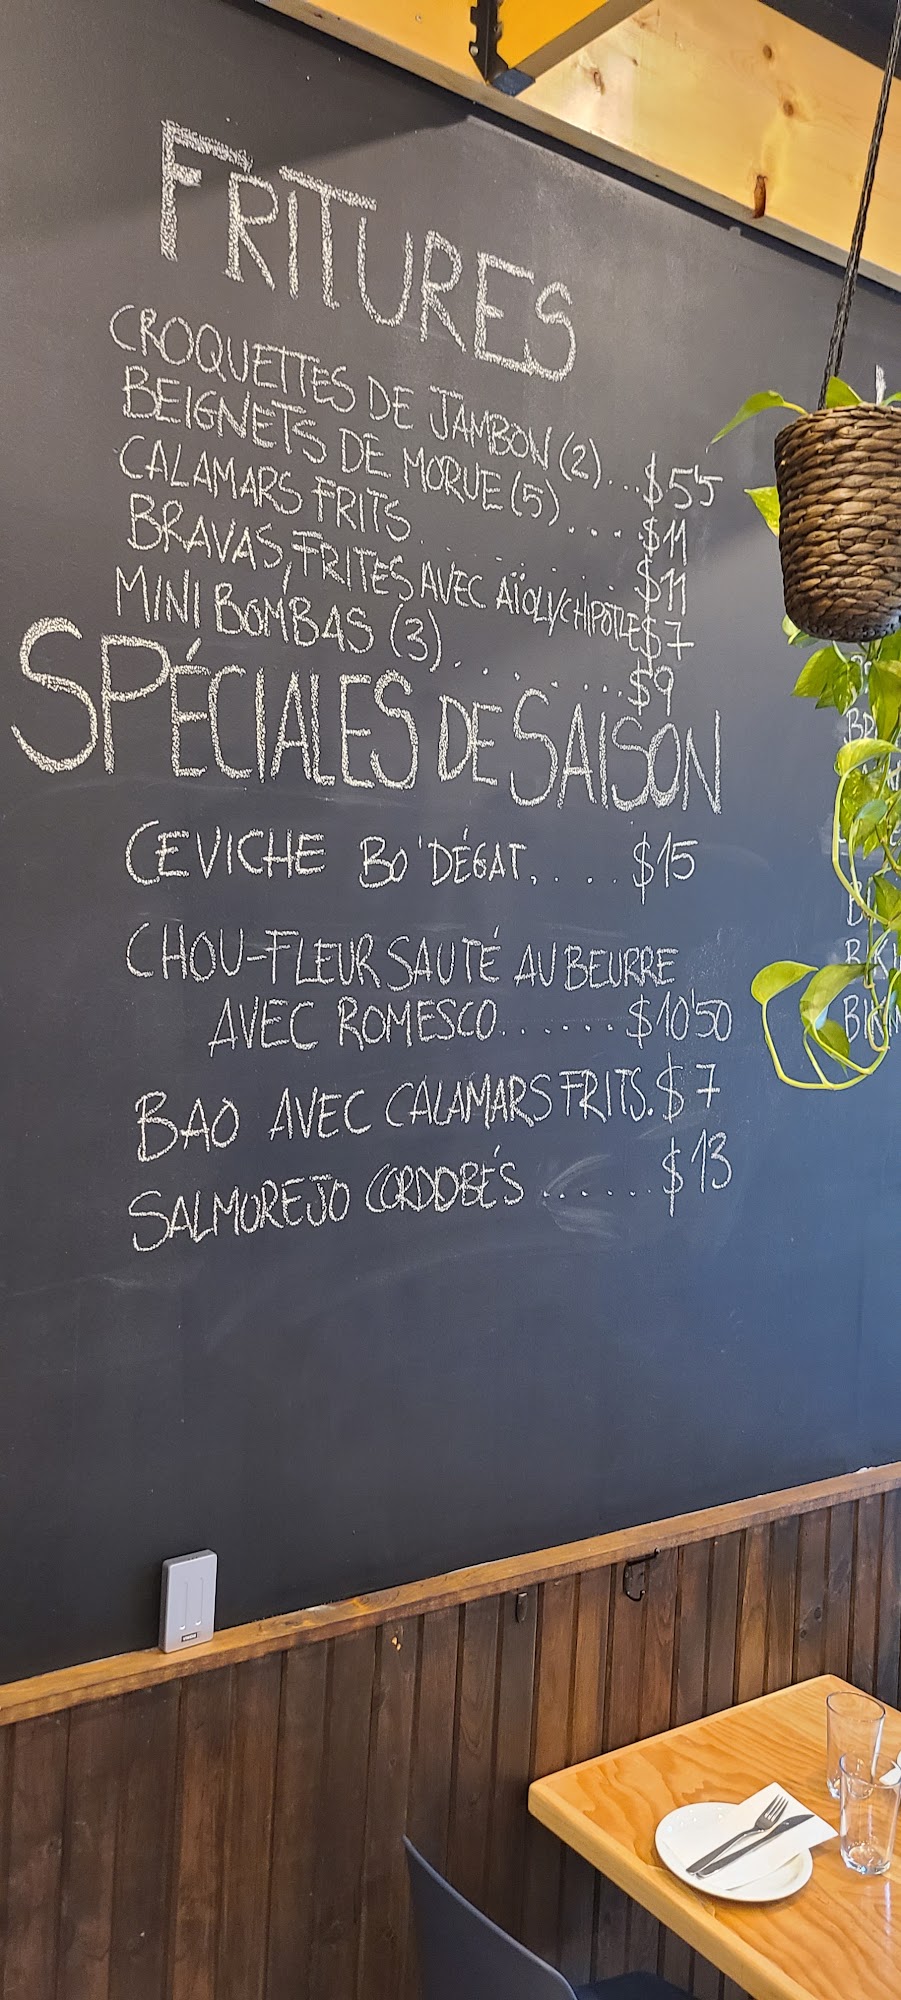 FRITURES
CROQUETTES DE JAMBON (2)...$5'5
BEIGNETS DE MORUE (5).....$11
CALAMARS FRITS.........$11
BRAVAS, FRITES AVEC AÏOLI/CHIPOTLE $7
MINI BOMBAS (3).......$9
SPÉCIALES DE SAISON
CEVICHE BO'DÉGAT.....$15
CHOU-FLEUR SAUTÉ AU BEURRE
AVEC ROMESCO......$10'50
BAO AVEC CALAMARS FRITS.$7
SALMOREJO CORDOBÉS......$13